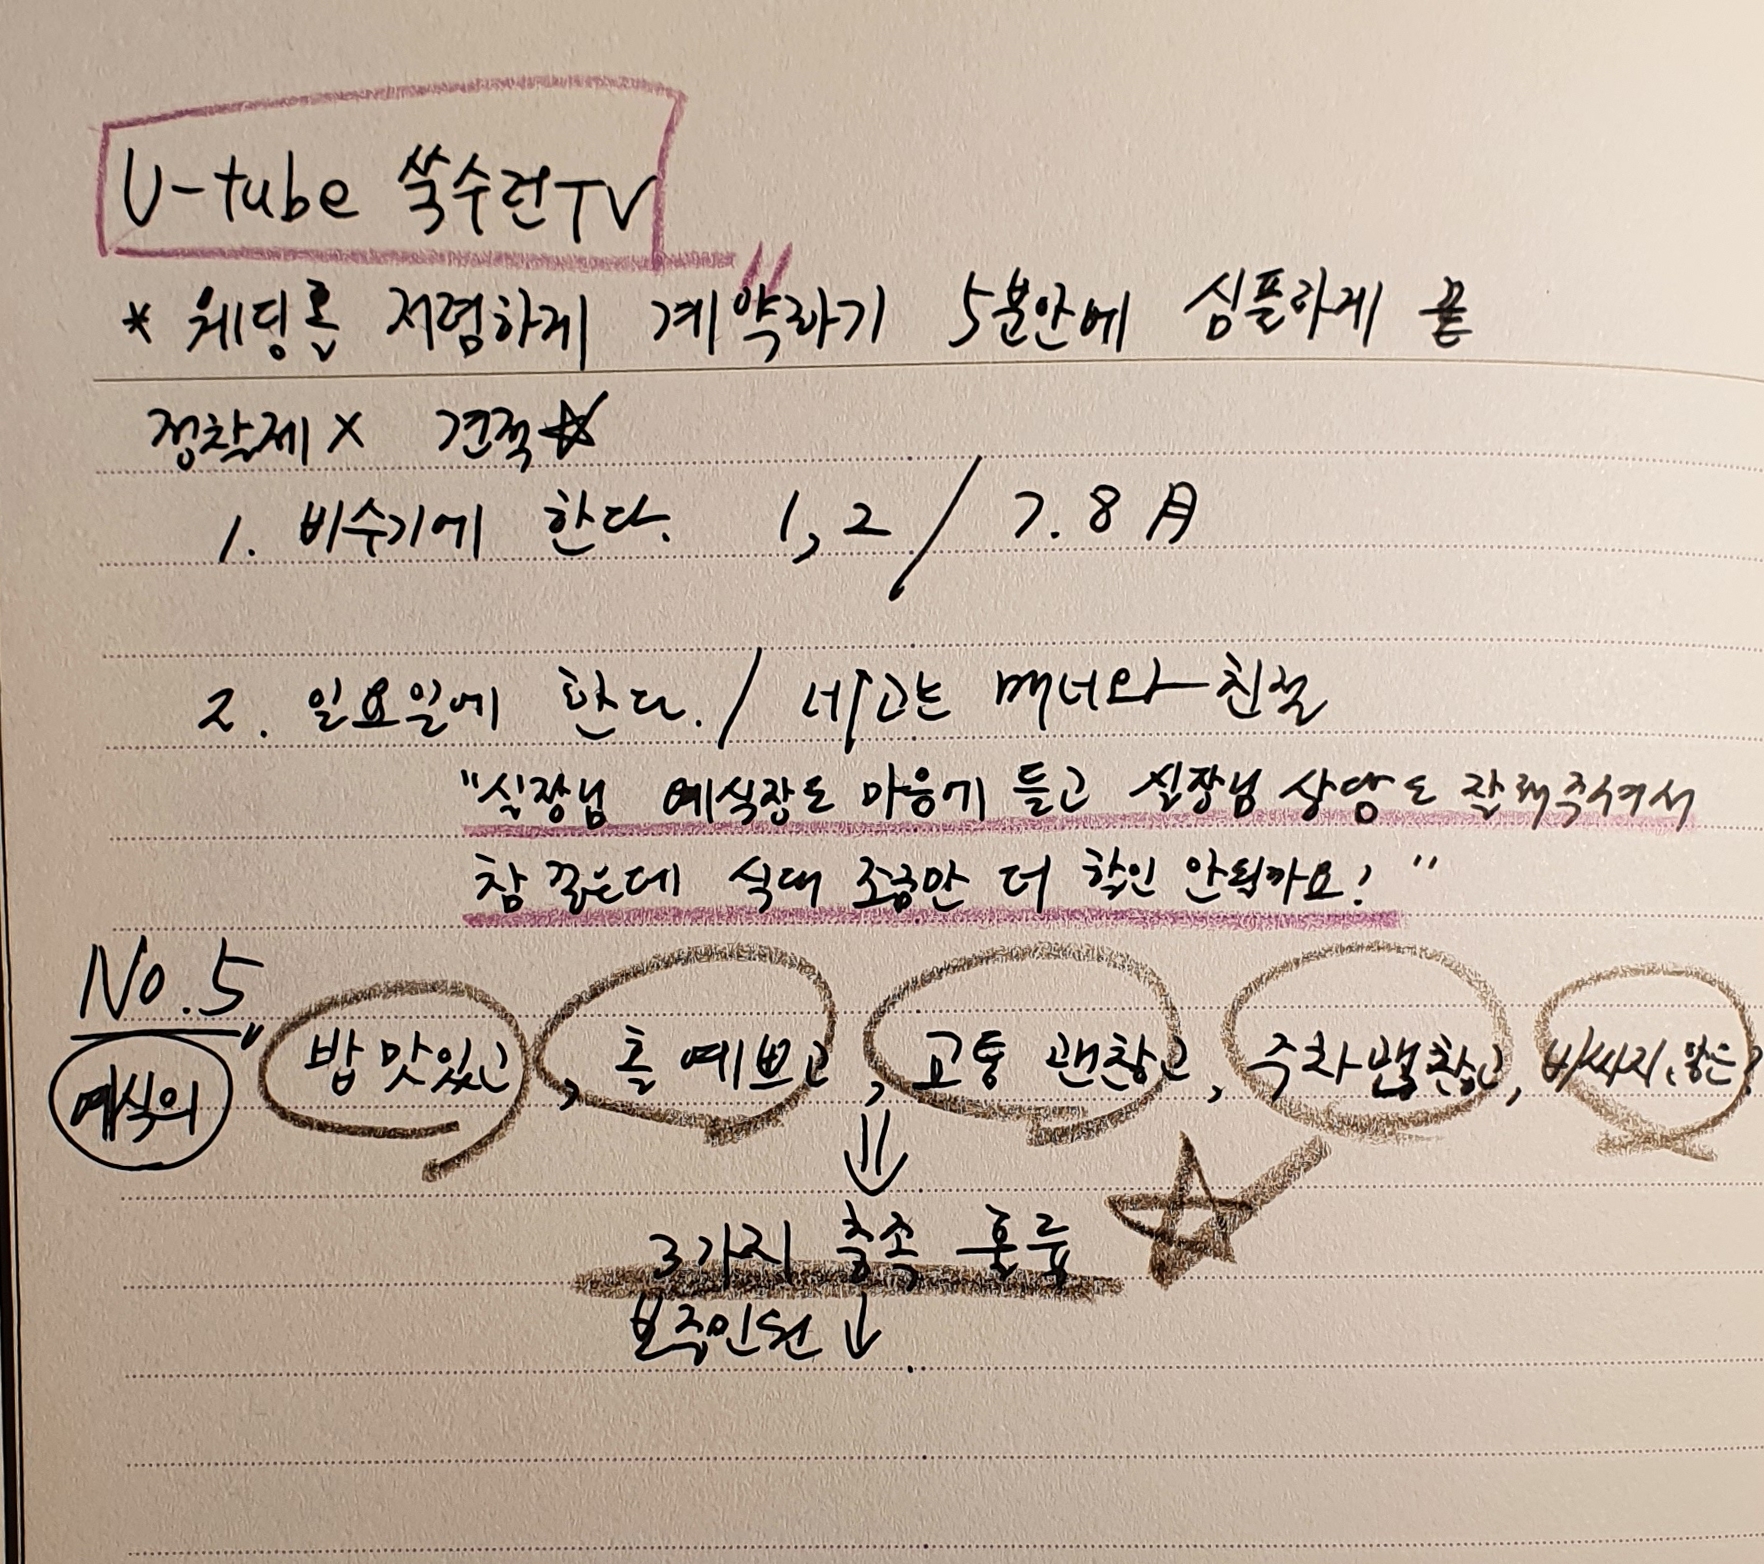 U-tube 쑥수련TV
* 웨딩홀 저렴하게 계약하기 5분안에 심플하게 끝
정찰제 X 견적☆
1. 비수기에 한다. 1, 2 / 7. 8 月
2. 일요일에 한다. / 네고는 매너와 친절
"실장님 예식장도 마음에 들고 실장님 상담도 잘해주셔서
참 좋은데 식대 조금만 더 할인 안될까요! "
No.5
예식의 밥 맛있고, 홀 예쁘고, 교통 괜찮고, 주차 괜찮고, 비싸지 않은?
⇓
3가지 충족 훌륭 ☆
보증인원 ↓